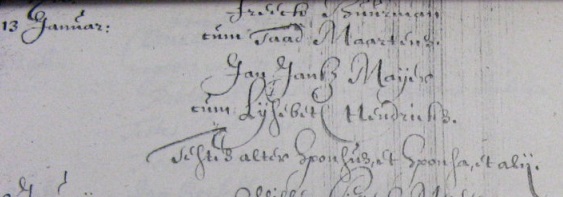 13 Januar:
cum Taad Maartens.
Jan Jantz Mayer
cum Lysebet Hendricks.
Testes alter Sponsus, et Sponsa, et alij.